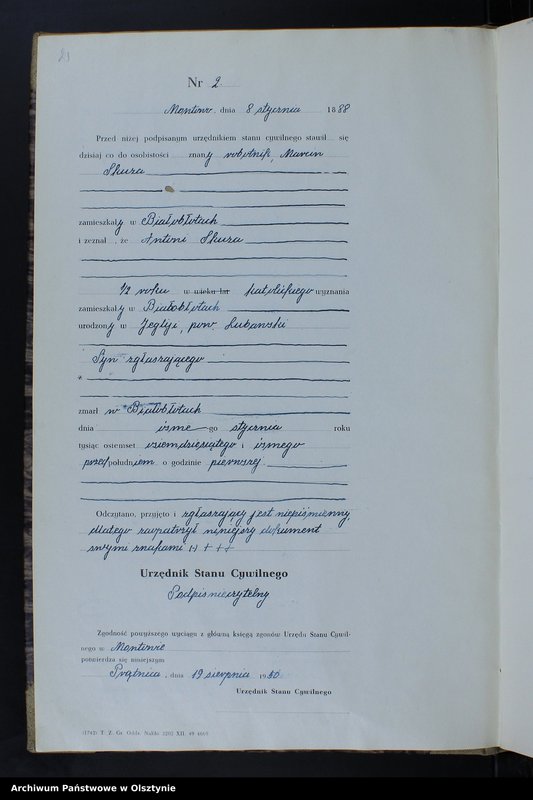 Nr 2
Montowo, dnia 8 stycznia 1888
Przed niżej podpisanym urzędnikiem stanu cywilnego stawił się
dzisiaj co do osobistości znany robotnik, Marcin
Skuza
zamieszkały w Białobłotach
i zeznał, że Antoni Skuza
1/2 roku w wieku lat katolickiego wyznania
zamieszkały w Białobłotach
urodzony w Jeglji, pow. Lubawski
Syn zgłaszającego
zmarł w Białobłotach
dnia ósmego stycznia roku
tysiąc osiemset osiemdziesiątego i ósmego
przed południem o godzinie pierwszej
Odczytano, przyjęto i zgłaszający jest niepiśmienny,
dlatego zaopatrzył niniejszy dokument
swymi znakami +++
Urzędnik Stanu Cywilnego
Podpis nieczytelny
Zgodność powyższego wyciągu z główną księgą zgonów Urzędu Stanu Cywil-
nego w Montowie
potwierdza się niniejszym
Prątnica, dnia 19 sierpnia 1950
Urzędnik Stanu Cywilnego
Archiwum Państwowe w Olsztynie